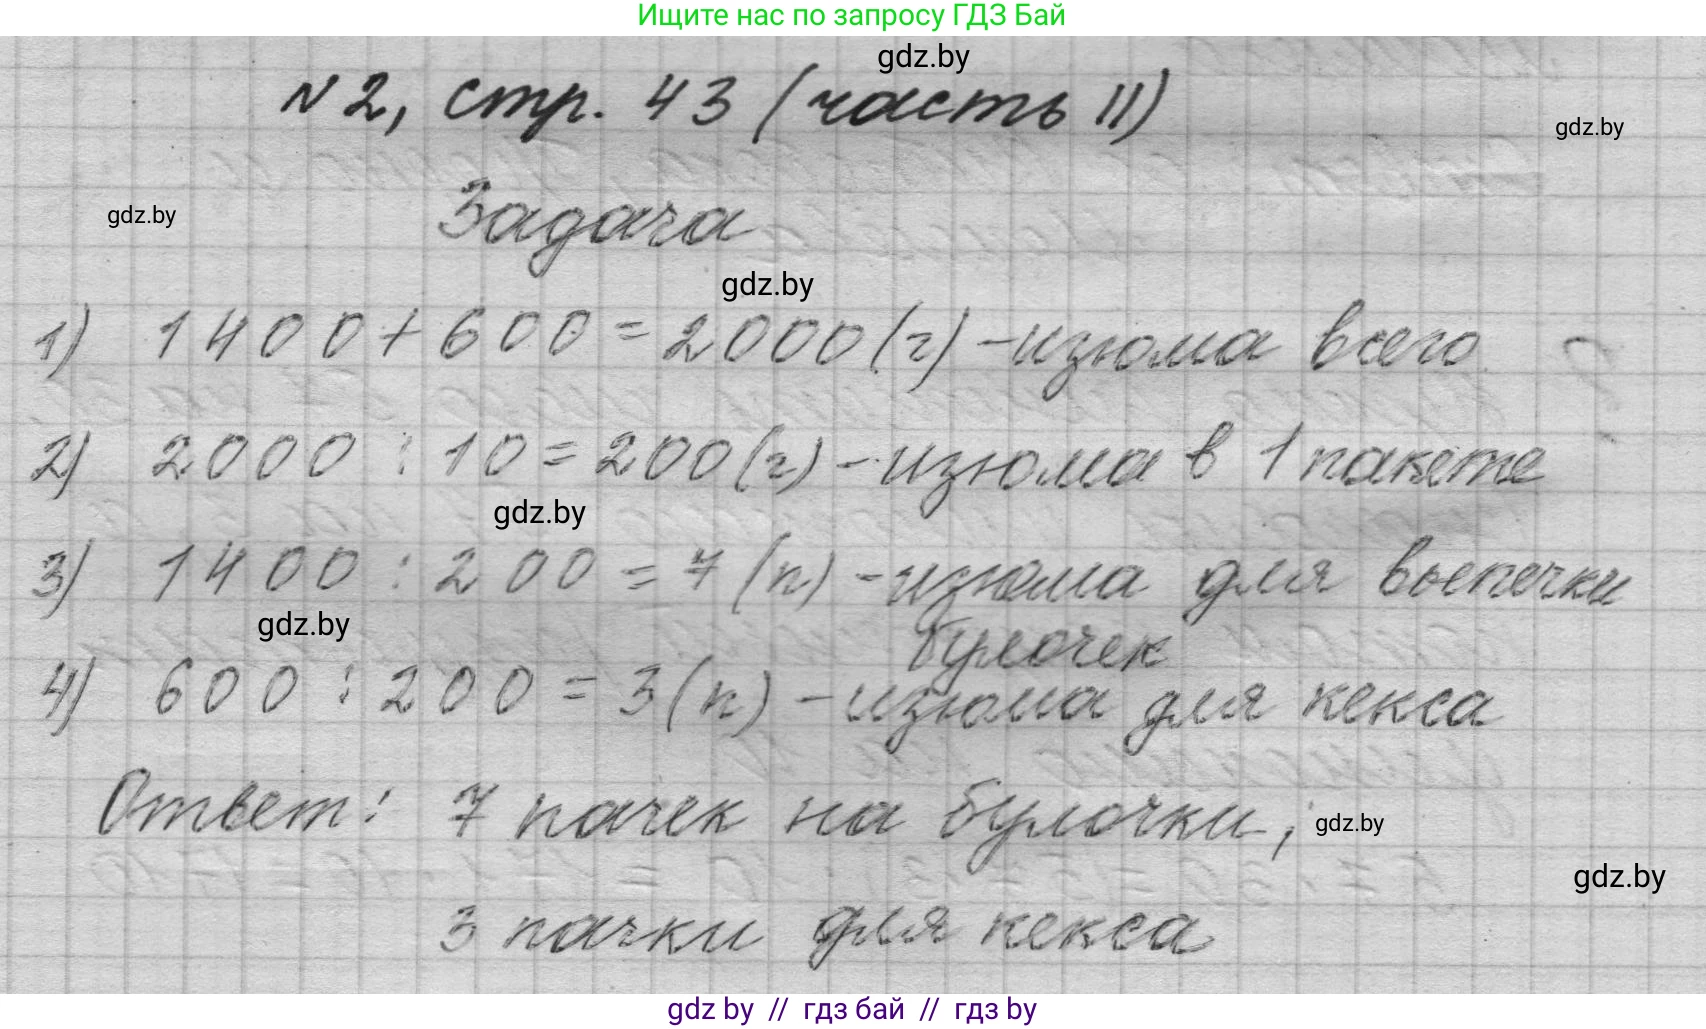 Ищите нас по запросу ГДЗ Бай
gdz.by
N2, стр. 43 (часть II)
gdz.by
gdz.by
Задача
gdz.by
1) 1400+600=2000(г)-изюма всего
2) 2000:10=200(г)-изюма в 1 пакете
gdz.by
3) 1400:200=7(п)-изюма для выпечки
булочек
gdz.by
4) 600:200=3(п)-изюма для кекса
Ответ: 7 пачек на булочки,
gdz.by
gdz.by
3 пачки для кекса
gdz by // гдз бай // gdz by